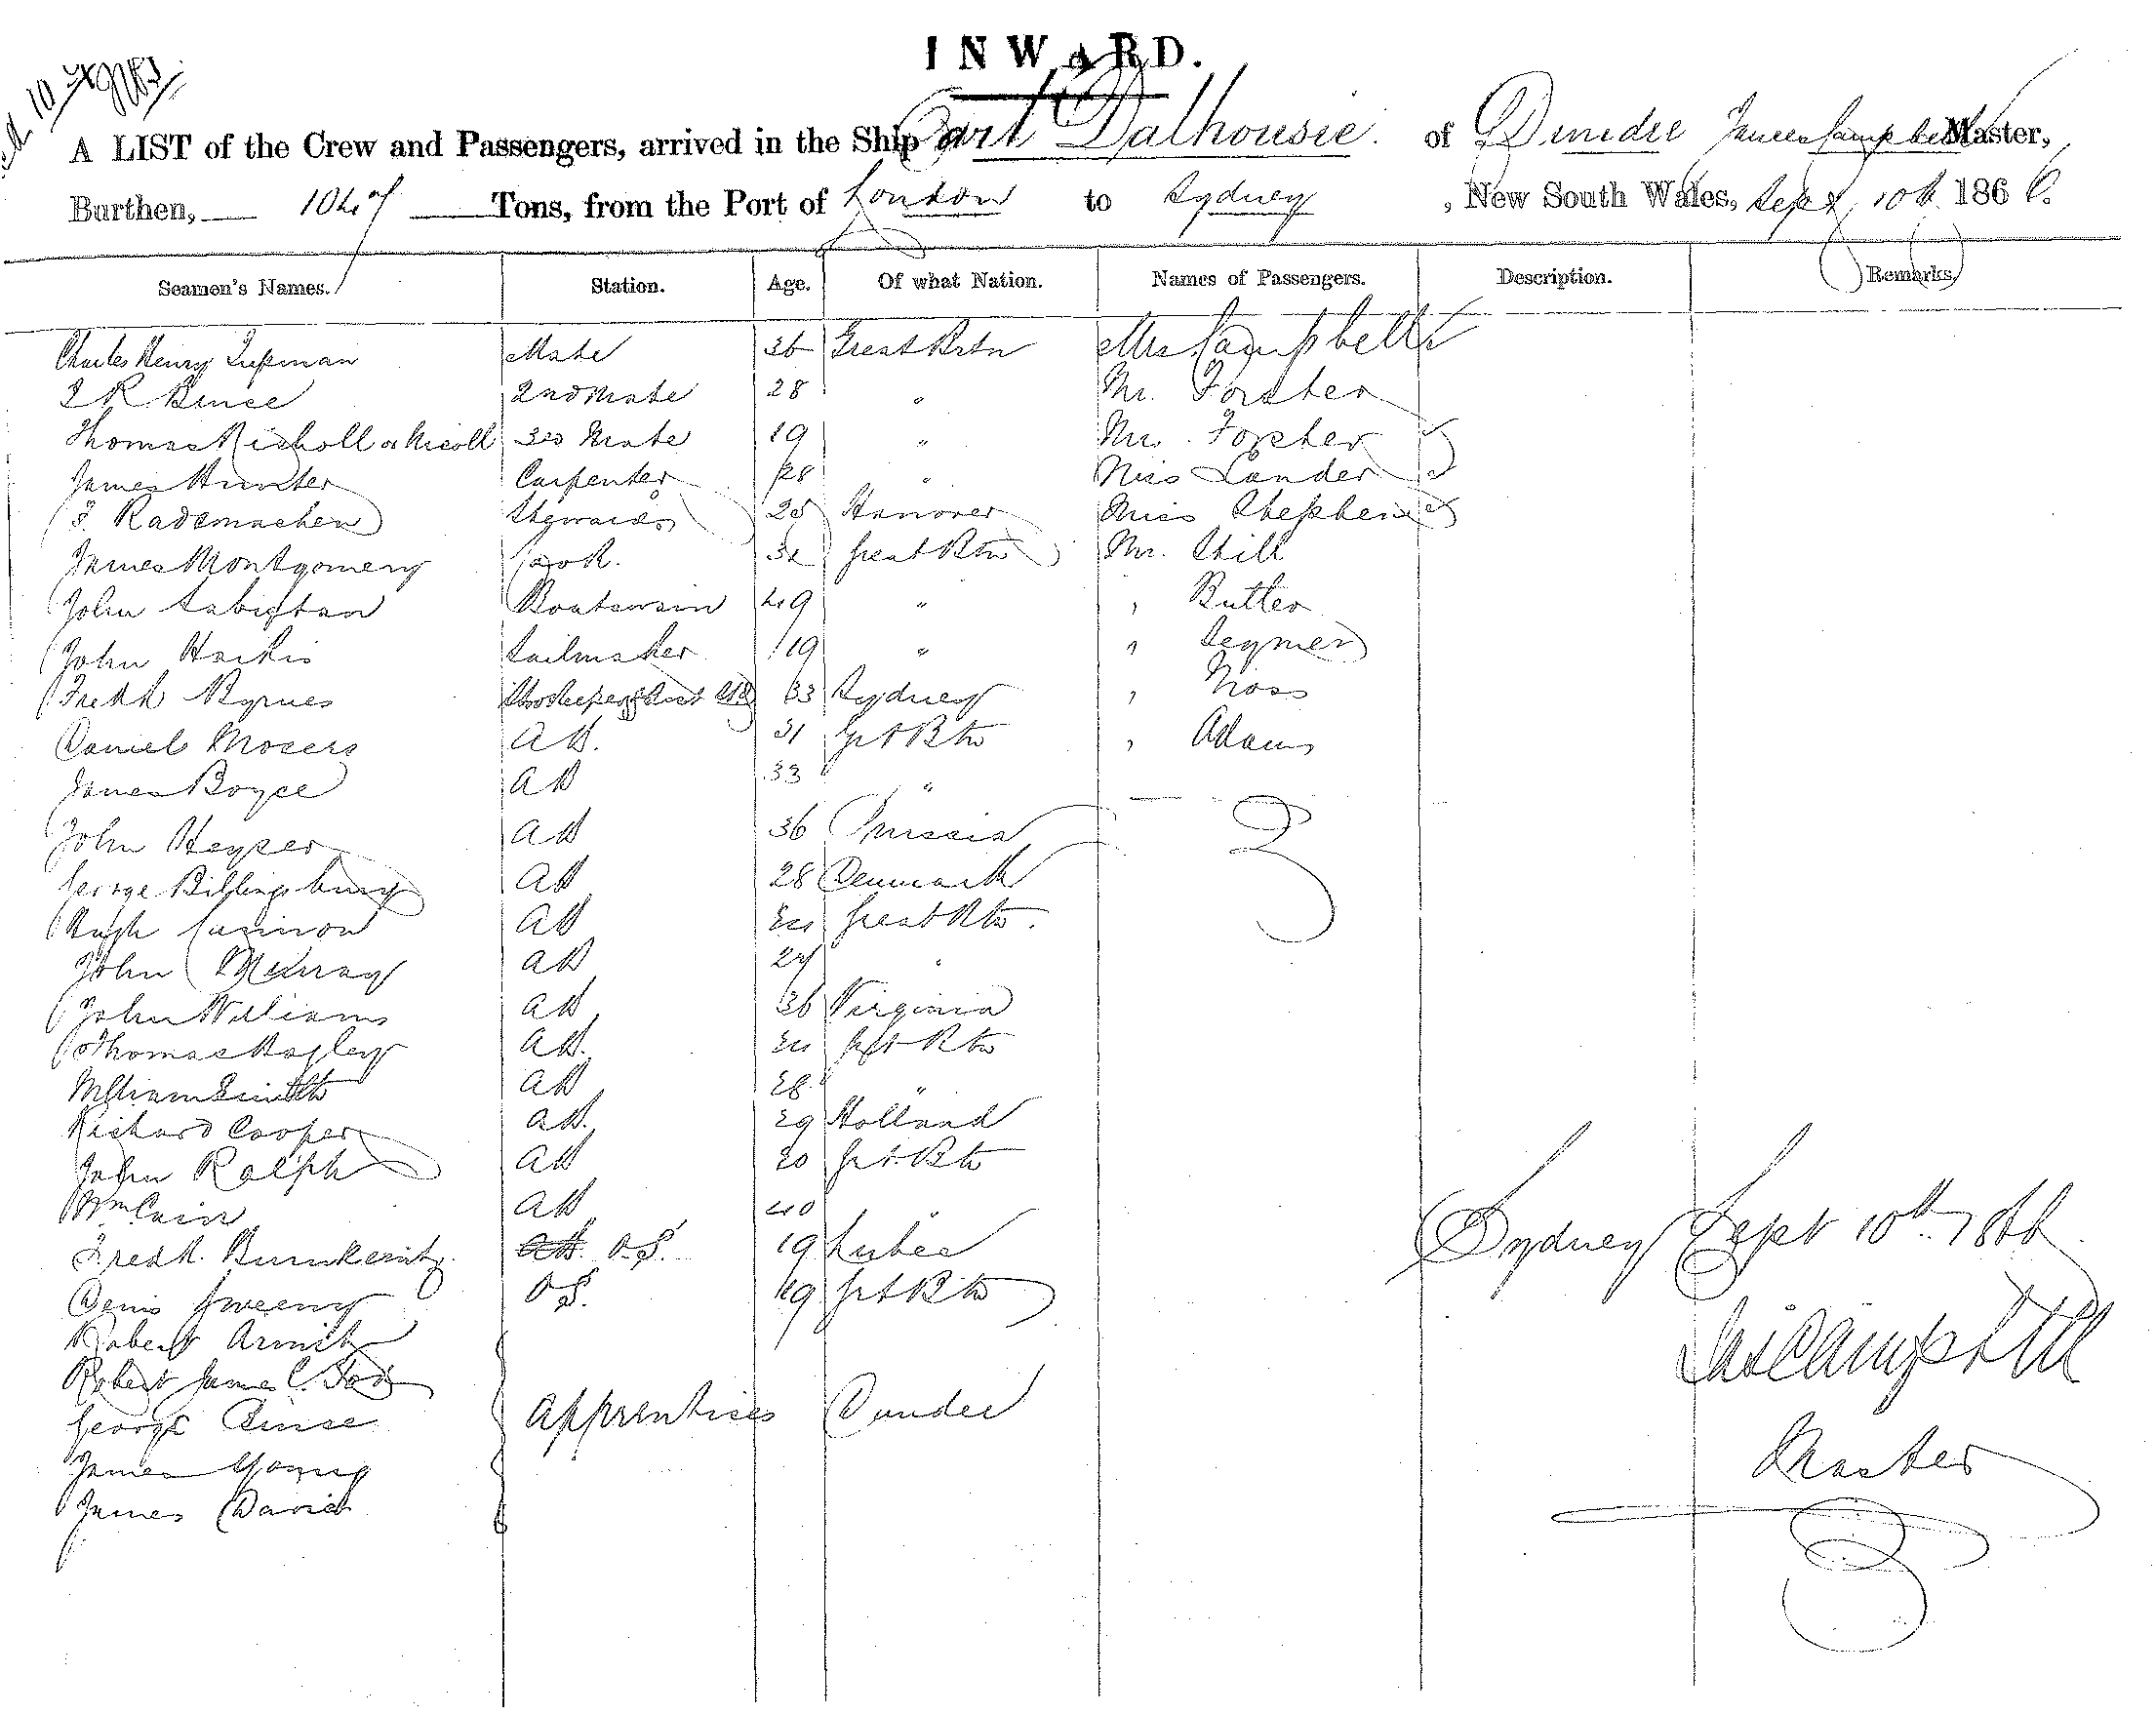 INWARD.
A LIST of the Crew and Passengers, arrived in the Ship Earl Dalhousie. of Dundee James Campbell Master,
Burthen, 1047 Tons, from the Port of London to Sydney, New South Wales, Sept 10th 1866.
Seamen's Names. Station. Age. Of what Nation. Names of Passengers. Description. Remarks.
Charles Henry Mate 36 Great Brtn Mrs Campbell
Bruce 2nd Mate 28 " Mr. Forster
Thomas Nicholl or Nicoll 3rd Mate 19 " Mrs. Forster
James Hunter Carpenter 28 " Miss Lander
Rademacher Stewards 25 Hanover Miss Stephens
James Montgomery Cook. Great Btn Mr. Still
John Boatswain 49 " , Butler
John Harkis Sailmaker 19 " ,
Fredk Byrnes 33 Sydney , Moss
Daniel Mosers AB. 31 Grt Btn , Adams
James Boyce AB 33 "
John Heyser AB 36 Prussia
George Billingsburg AB 28 Denmark
Hugh Cannon AB Great Btn.
John Murray AB 24 "
John Williams AB 36 Virginia
Thomas Bagley AB. Grt Btn
William Smith AB 28 "
Richard Cooper AB. 29 Holland
John Ralph AB 20 Grt. Btn
Wm Cain AB 40 "
Fredk. AB. O.S. 19 Lubec
Denis Sweeny O.S. 19 Grt Btn
Robert Armit
Robert James C.
George Bruce Apprentices Dundee
James Young
James David
Sydney Sept 10th 1866
Jas Campbell
Master